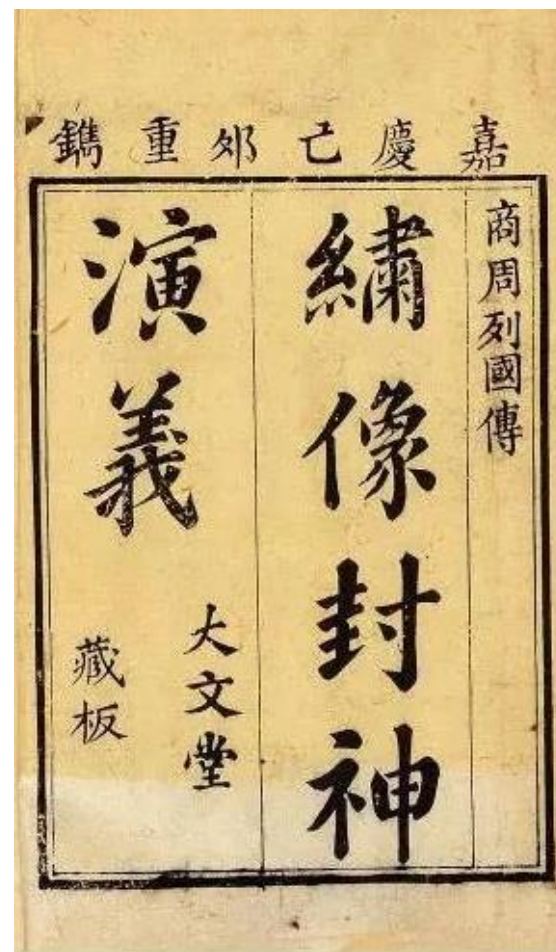 嘉慶己夘重鐫
商周列國傳
繡像封神
演義
大文堂
藏板